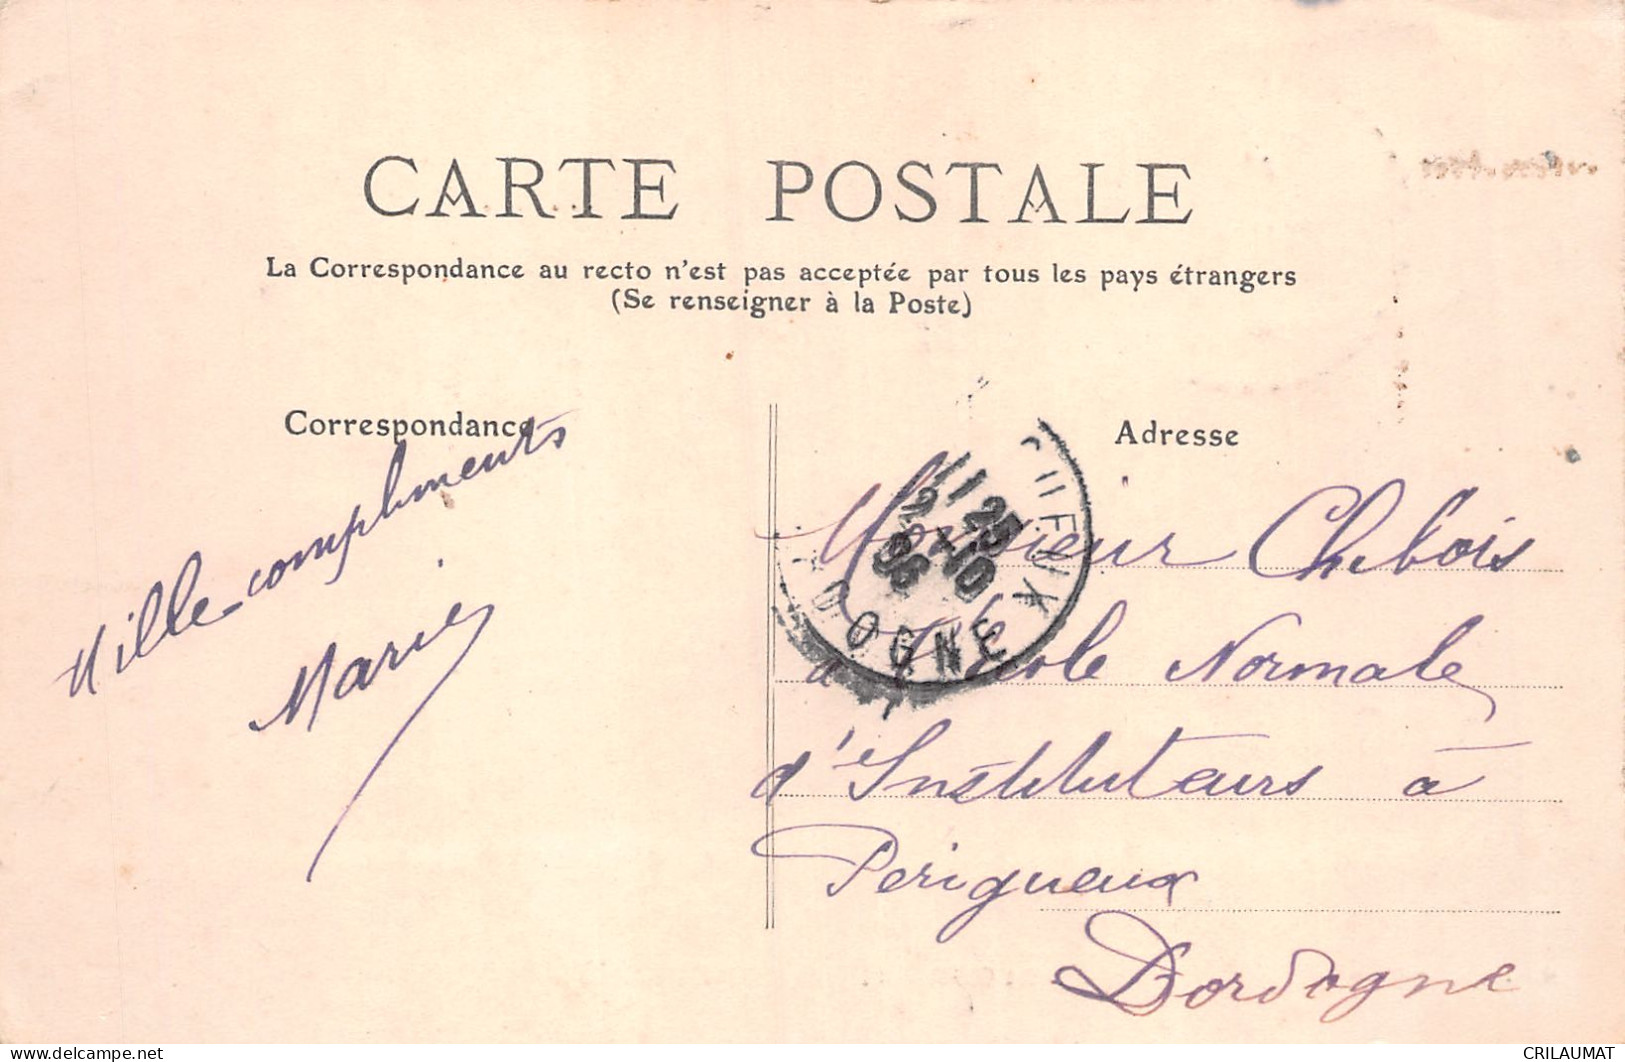 CARTE POSTALE
La Correspondance au recto n'est pas acceptée par tous les pays étrangers
(Se renseigner à la Poste)
Correspondance
Mille compliments
Marie
Adresse
Monsieur Chebois
à l'École Normale
d'Instituteurs à
Perigueux
Dordogne
11 25
DOGNE
CRILAUMAT